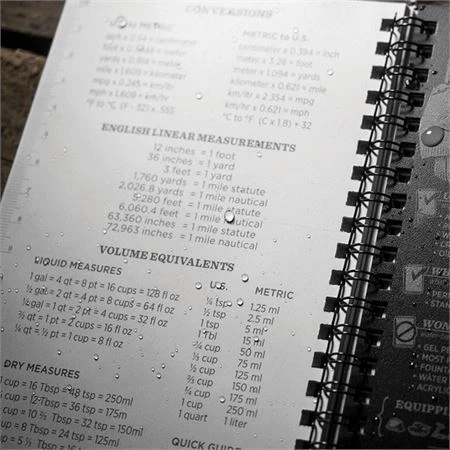 CONVERSIONS
U.S. to METRIC
inch x 2.54 = cm
foot x 0.3048 = meter
yards x 0.914 = meter
mile x 1.609 = kilometer
mpg x 0.245 = km/lt
mph x 1.609 = km/hr
°F to °C (F - 32) x .555
METRIC to U.S.
centimeter x 0.394 = inch
meter x 3.28 = foot
meter x 1.094 = yards
kilometer x 0.621 = mile
km/lt x 2.354 = mpg
km/hr x 0.621 = mph
°C to °F (C x 1.8) + 32
ENGLISH LINEAR MEASUREMENTS
12 inches = 1 foot
36 inches = 1 yard
3 feet = 1 yard
1,760 yards = 1 mile statute
2,026.8 yards = 1 mile nautical
5,280 feet = 1 mile statute
6,060.4 feet = 1 mile nautical
63,360 inches = 1 mile statute
72,963 inches = 1 mile nautical
VOLUME EQUIVALENTS
LIQUID MEASURES
1 gal = 4 qt = 8 pt = 16 cups = 128 fl oz
½ gal = 2 qt = 4 pt = 8 cups = 64 fl oz
¼ gal = 1 qt = 2 pt = 4 cups = 32 fl oz
½ qt = 1 pt = 2 cups = 16 fl oz
¼ qt = ½ pt = 1 cup = 8 fl oz
DRY MEASURES
1 cup = 16 Tbsp = 48 tsp = 250ml
¾ cup = 12 Tbsp = 36 tsp = 175ml
cup = 10 ⅔ Tbsp = 32 tsp = 150ml
cup = 8 Tbsp = 24 tsp = 125ml
cup = 5 ⅓ Tbsp = 16 tsp
U.S. METRIC
¼ tsp 1.25 ml
½ tsp 2.5 ml
1 tsp 5 ml
1 tbl 15 ml
¼ cup 50 ml
⅓ cup 75 ml
½ cup 125 ml
⅔ cup 150 ml
¾ cup 175 ml
1 cup 250 ml
1 quart 1 liter
QUICK GUIDE